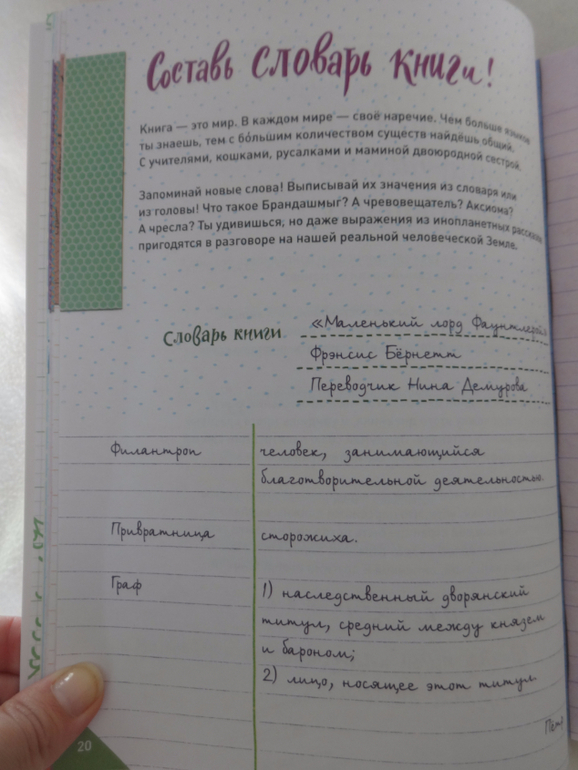 Составь словарь книги!
Книга — это мир. В каждом мире — своё наречие. Чем больше языков
ты знаешь, тем с бóльшим количеством существ найдёшь общий.
С учителями, кошками, русалками и маминой двоюродной сестрой.
Запоминай новые слова! Выписывай их значения из словаря или
из головы! Что такое Брандашмыг? А чревовещатель? Аксиома?
А чресла? Ты удивишься, но даже выражения из инопланетных рассказов
пригодятся в разговоре на нашей реальной человеческой Земле.
Словарь книги «Маленький лорд Фаунтлерой»
Фрэнсис Бёрнетт
Переводчик Нина Демурова
Филантроп человек, занимающийся
благотворительной деятельностью.
Привратница сторожиха.
Граф 1) наследственный дворянский
титул, средний между князем
и бароном;
2) лицо, носящее этот титул.
20